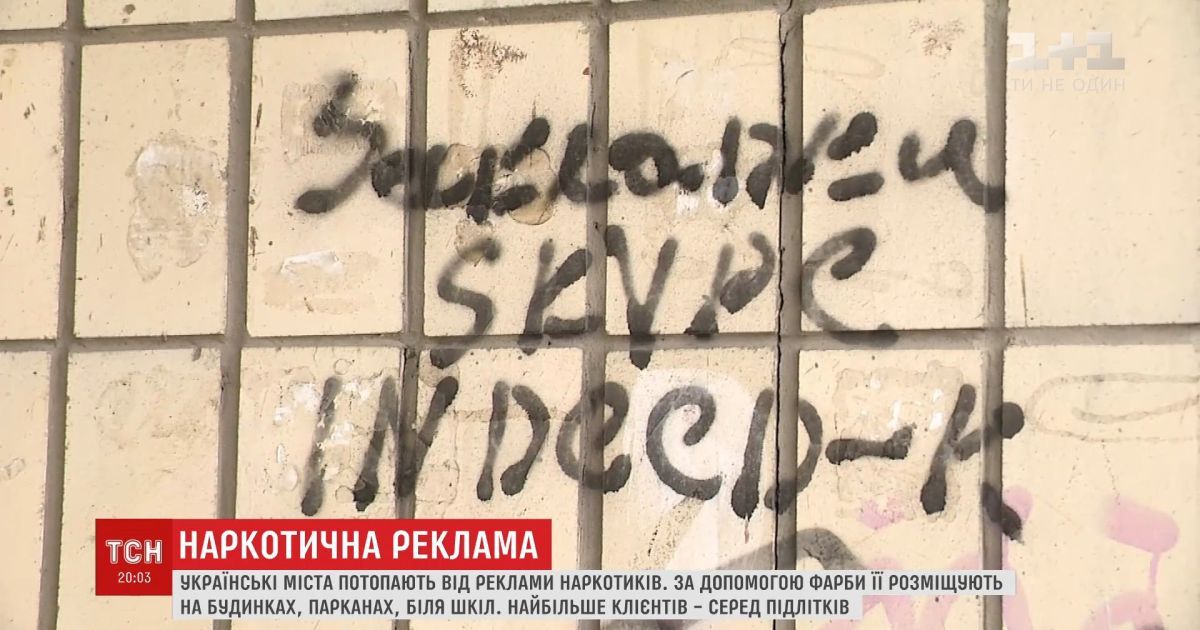 1+1
ТИ НЕ ОДИН
Закладки
SKYPE
INDEED-K
ТСН
20:03
НАРКОТИЧНА РЕКЛАМА
УКРАЇНСЬКІ МІСТА ПОТОПАЮТЬ ВІД РЕКЛАМИ НАРКОТИКІВ. ЗА ДОПОМОГОЮ ФАРБИ ЇЇ РОЗМІЩУЮТЬ
НА БУДИНКАХ, ПАРКАНАХ, БІЛЯ ШКІЛ. НАЙБІЛЬШЕ КЛІЄНТІВ – СЕРЕД ПІДЛІТКІВ